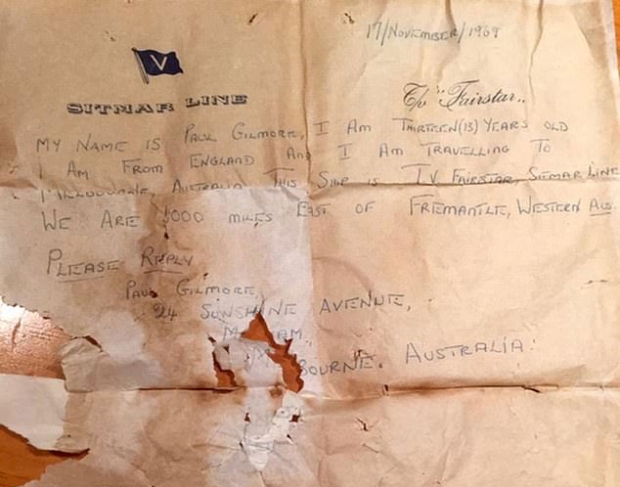 17/November/1969
V
SITMAR LINE
T/v "Fairstar"
MY NAME IS PAUL GILMORE, I AM THIRTEEN (13) YEARS OLD
I AM FROM ENGLAND AND I AM TRAVELLING TO
MELBOURNE, AUSTRALIA THIS SHIP IS T.V FAIRSTAR, SITMAR LINE
WE ARE 1000 MILES EAST OF FREMANTLE, WESTERN AUS.
PLEASE REPLY
PAUL GILMORE,
24 SUNSHINE AVENUE,
M AM,
BOURNE. AUSTRALIA.